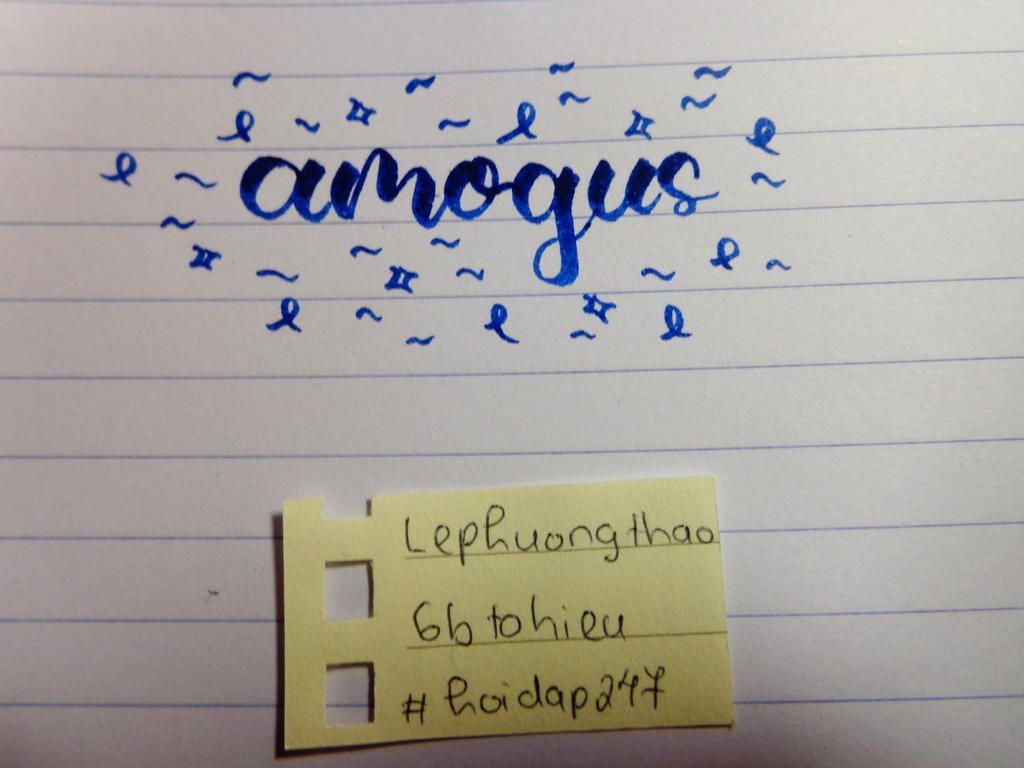 amogus
Lephuongthao
6b tohieu
#hoidap247